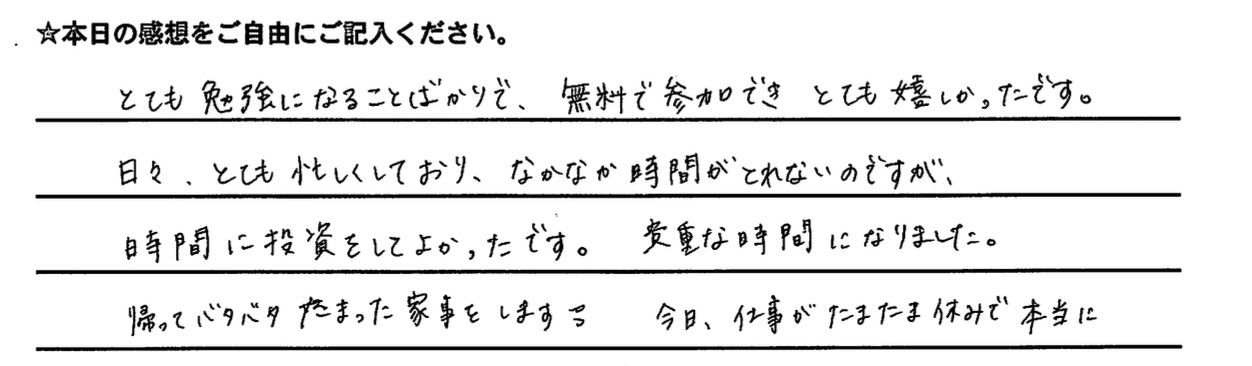 ☆本日の感想をご自由にご記入ください。
とても勉強になることばかりで、無料で参加でき とても嬉しかったです。
日々、とても忙しくしており、なかなか時間がとれないのですが、
時間に投資をしてよかったです。 貴重な時間になりました。
帰ってバタバタ 貯まった家事をします 今日、仕事がたまたま休みで本当に